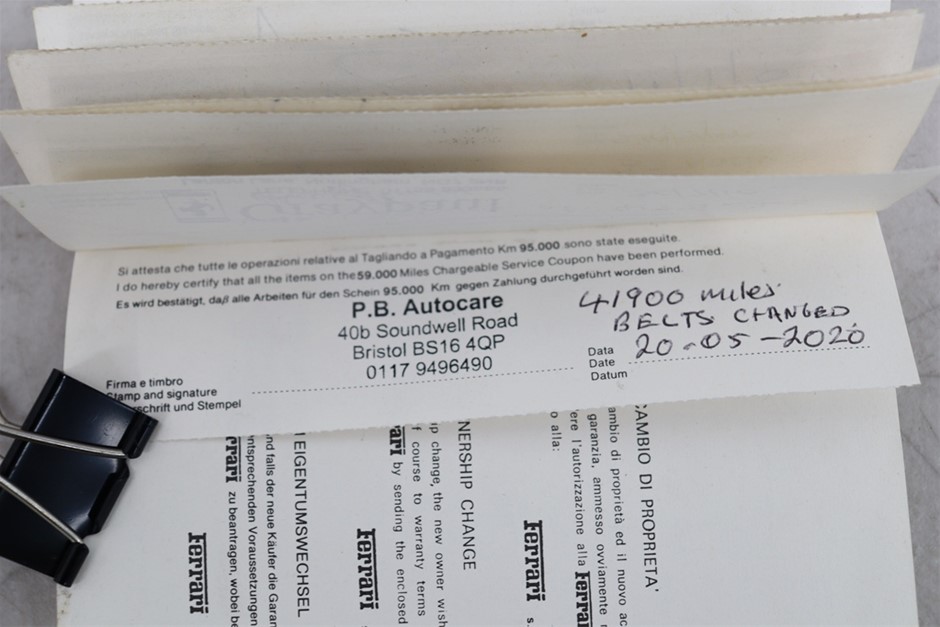 Si attesta che tutte le operazioni relative al Tagliando a Pagamento Km 95.000 sono state eseguite.
I do hereby certify that all the items on the 59.000 Miles Chargeable Service Coupon have been performed.
Es wird bestätigt, daß alle Arbeiten für den Schein 95.000 Km gegen Zahlung durchgeführt worden sind.
P.B. Autocare
40b Soundwell Road
Bristol BS16 4QP
0117 9496490
41900 miles.
BELTS CHANGED
20-05-2020
Data
Date
Datum
Firma e timbro
Stamp and signature
schrift und Stempel
EIGENTUMSWECHSEL
nd falls der neue Käufer die Garan
ntsprechenden Voraussetzungen
zu beantragen, wobei be
Ferrari
NERSHIP CHANGE
p change, the new owner wish
f course to warranty terms
by sending the enclosed
Ferrari
CAMBIO DI PROPRIETA'
ambio di proprietà ed il nuovo ac
garanzia, ammesso ovviamente
ere l'autorizzazione alla Ferrari
o alla:
Ferrari